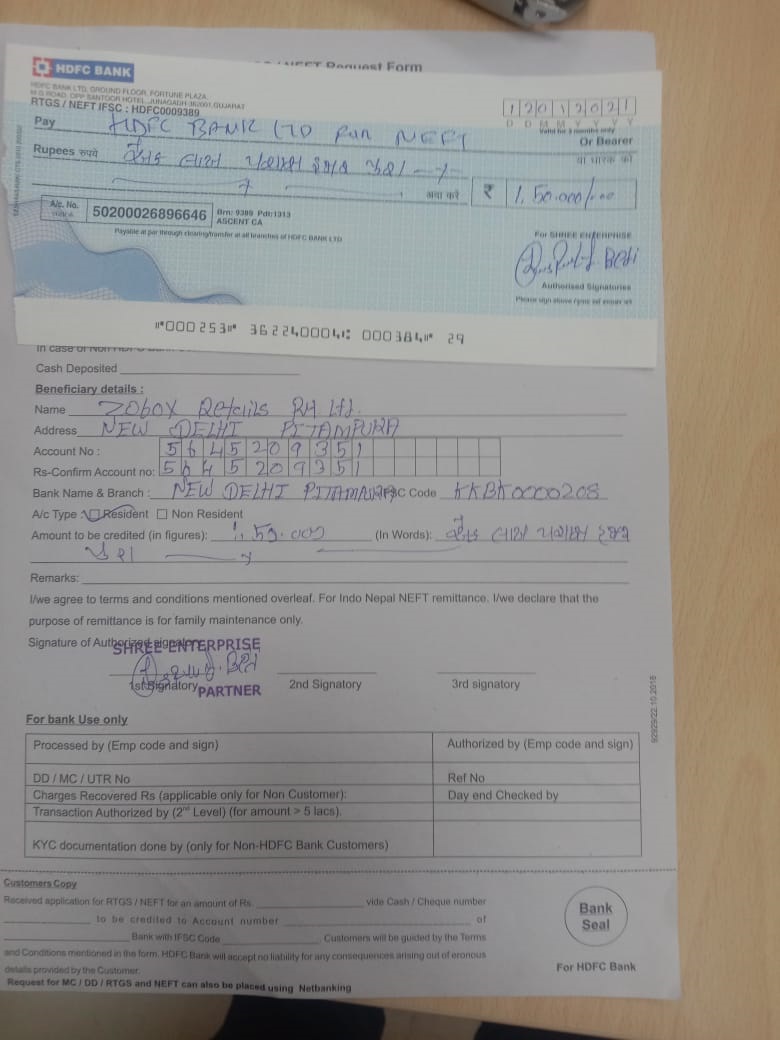 NEFT Request Form
HDFC BANK
HDFC BANK LTD, GROUND FLOOR, FORTUNE PLAZA,
M.G ROAD, OPP SANTOOR HOTEL, JUNAGADH-362001, GUJARAT
RTGS / NEFT IFSC : HDFC0009389
12012021
D D M M Y Y Y Y
Valid for 3 months only
Pay HDFC BANK LTD NEFT Or Bearer
या धारक को
Rupees रुपये એક લાખ પચાસ હજાર પુરા
अदा करें ₹ 1,50.000/-
A/c. No. 50200026896646 Brn: 9389 Pdt:1313
ASCENT CA
Payable at par through clearing/transfer at all branches of HDFC BANK LTD
For SHREE ENTERPRISE
Authorised Signatories
Please sign above
⑈000253⑈ 362240004⑆ 000384⑈ 29
Cash Deposited
Beneficiary details :
Name ZOBOX Retails
Address NEW DELHI PITAMPURA
Account No : 5645209351
Rs-Confirm Account no: 5645209351
Bank Name & Branch : NEW DELHI PITAMPURA IFSC Code KKBK0000208
A/c Type : Resident Non Resident
Amount to be credited (in figures): 1,50.000 (In Words): એક લાખ પચાસ હજાર
પુરા
Remarks:
I/we agree to terms and conditions mentioned overleaf. For Indo Nepal NEFT remittance. I/we declare that the
purpose of remittance is for family maintenance only.
Signature of Authorized signatory
SHREE ENTERPRISE
1st Signatory PARTNER 2nd Signatory 3rd signatory
92929/22.10.2018
For bank Use only
Processed by (Emp code and sign) Authorized by (Emp code and sign)
DD / MC / UTR No Ref No
Charges Recovered Rs (applicable only for Non Customer): Day end Checked by
Transaction Authorized by (2nd Level) (for amount > 5 lacs).
KYC documentation done by (only for Non-HDFC Bank Customers)
Customers Copy
Received application for RTGS / NEFT for an amount of Rs. vide Cash / Cheque number
to be credited to Account number of
Bank with IFSC Code . Customers will be guided by the Terms
and Conditions mentioned in the form. HDFC Bank will accept no liability for any consequences arising out of eronous
details provided by the Customer.
Request for MC / DD / RTGS and NEFT can also be placed using Netbanking
Bank
Seal
For HDFC Bank